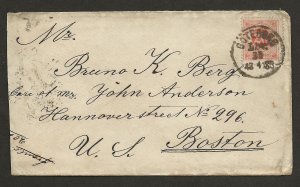 Mr.
Bruno K. Berg
care of Mr. John Anderson
Hannover street No 296.
U. S. Boston
GÖTEBORG